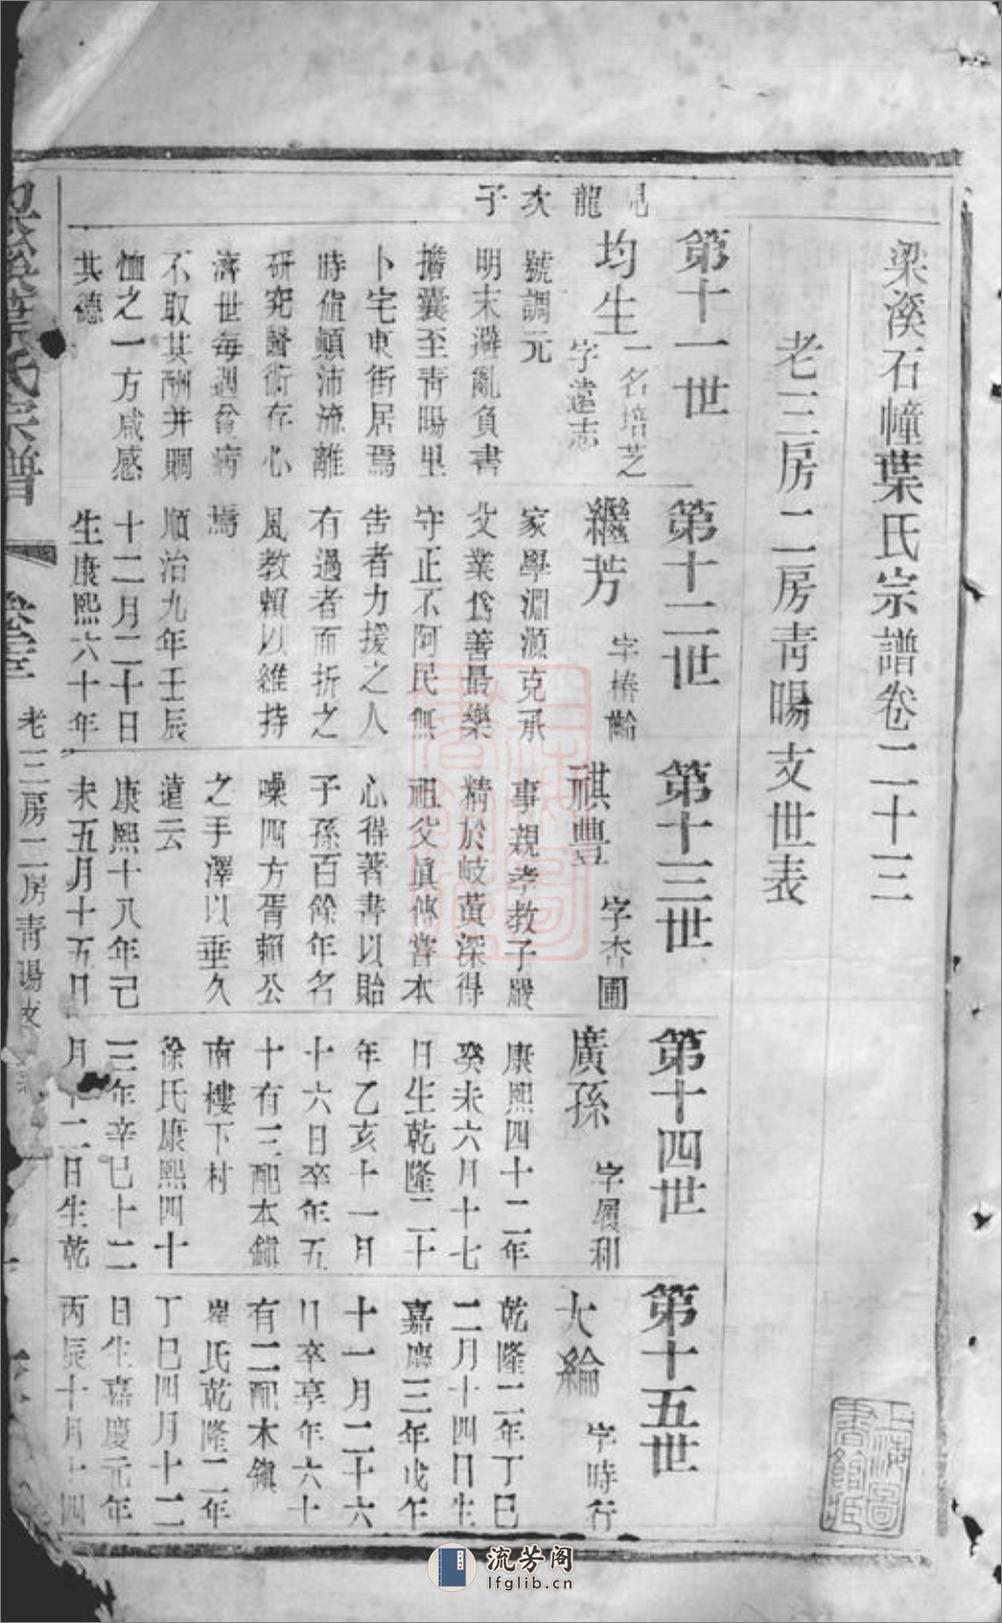 梁溪石幢葉氏宗譜卷二十三
老三房二房青暘支世表
第十一世
第十二世
第十三世
第十四世
第十五世
見龍次子
均生
一名培芝
字遠志
號調元
明末避亂負書
擔囊至青暘里
卜宅東街居焉
時值顛沛流離
研究醫術存心
濟世每遇貧病
不取其酬并賙
恤之一方咸感
其德
繼芳
字椿齡
家學淵源克承
父業為善最樂
守正不阿民無
告者力援之人
有過者面折之
風教賴以維持
焉
順治九年壬辰
十二月二十日
生康熙六十年
祺豊
字杏圃
事親孝教子嚴
精於岐黃深得
祖父真傳嘗本
心得著書以貽
子孫百餘年名
噪四方胥賴公
之手澤以垂久
遠云
康熙十八年己
未五月十五日
廣孫
字履和
康熙四十二年
癸未六月十七
日生乾隆二十
年乙亥十一月
十六日卒年五
十有三配本鎮
南樓下村
徐氏康熙四十
三年辛巳十二
月十二日生乾
大綸
字時行
乾隆二年丁巳
二月十四日生
嘉慶三年戊午
十一月二十六
日卒享年六十
有二配本鎮
氏乾隆二年
丁巳四月十二
日生嘉慶元年
丙辰十月十四
梁溪葉氏宗譜
卷二十三
老三房二房青暘支
上海圖書館藏
流芳阁
lfglib.cn